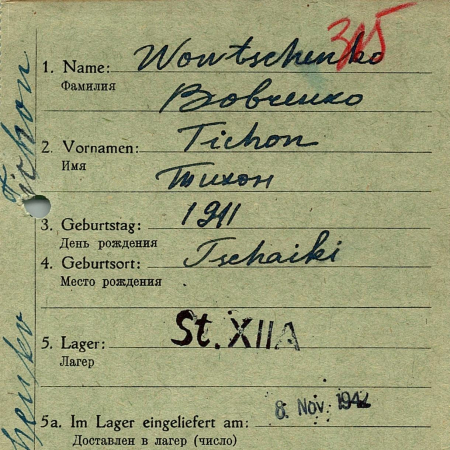 315
1. Name: Wowtschenko
Фамилия
Вовченко
2. Vornamen: Tichon
Имя
Тихон
3. Geburtstag: 1911
День рождения
4. Geburtsort: Tschaiki
Место рождения
5. Lager: St. XIIA
Лагер
5a. Im Lager eingeliefert am: 8. Nov. 1942
Доставлен в лагер (число)
Tichon